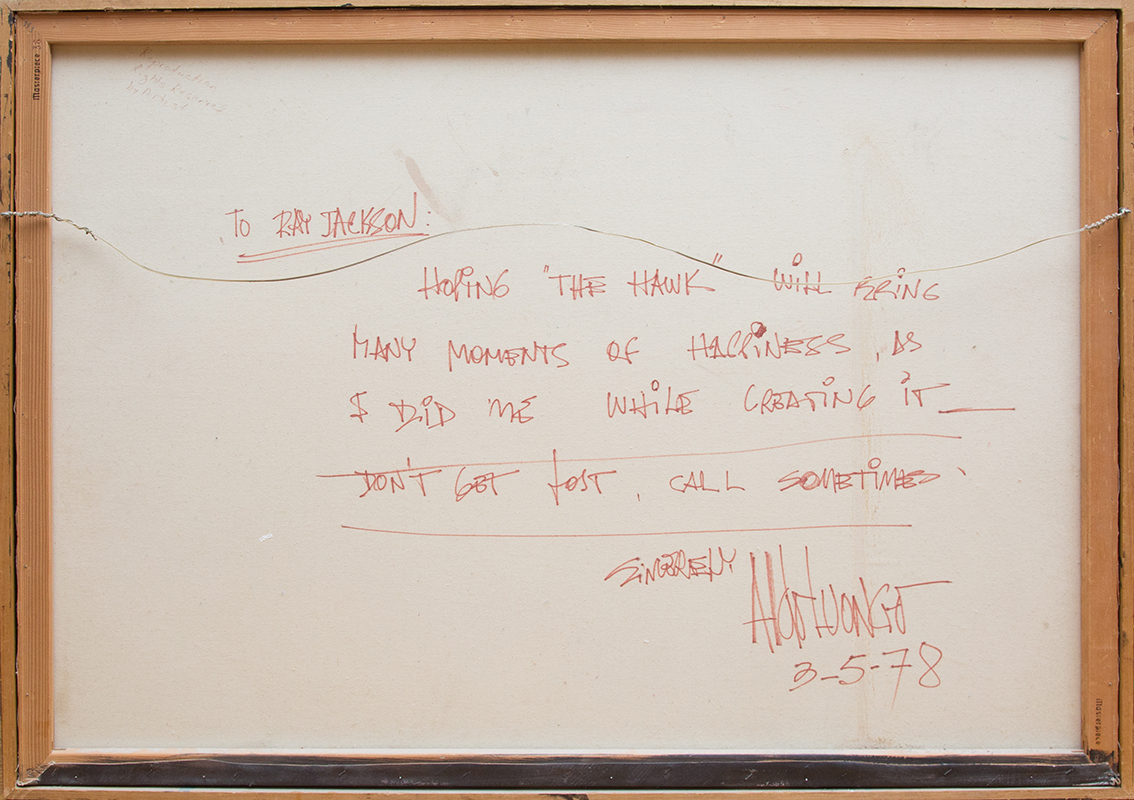 Masterpiece
Reproduction
Rights Reserved
by Artist
TO RAY JACKSON:
HOPING "THE HAWK" WILL BRING
MANY MOMENTS OF HAPPINESS, AS
I DID ME WHILE CREATING IT
DON'T GET LOST, CALL SOMETIMES
SINCERELY Aldo Luongo
3-5-78
Masterpiece